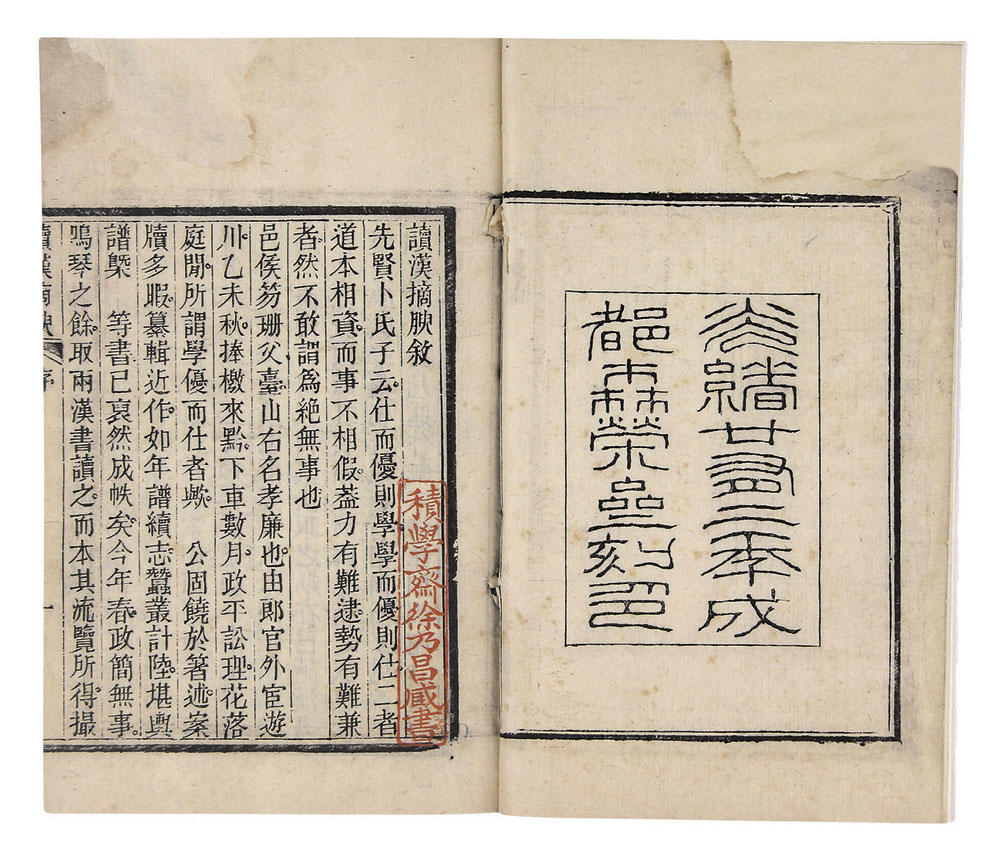 光緒廿有二年成
都森榮堂刻印
讀漢摘腴敘
先賢卜氏子云仕而優則學學而優則仕二者
道本相資而事不相假葢力有難逮勢有難兼
者然不敢謂爲絕無事也
邑侯笏珊父臺山右名孝廉也由郎官外宦遊
川乙未秋捧檄來黔下車數月政平訟理花落
庭閒所謂學優而仕者歟 公固饒於箸述案
牘多暇纂輯近作如年譜續志蠶叢計陸堪輿
譜槩 等書已裒然成帙矣今年春政簡無事
鳴琴之餘取兩漢書讀之而本其流覽所得撮
讀漢摘腴 序 一
積學齋徐乃昌藏書